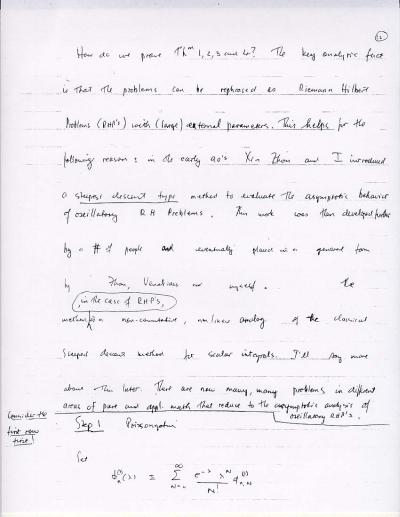 12
How do we prove Thm 1, 2, 3 and 4? The key analytic fact
is that the problems can be rephrased as Riemann Hilbert
Problems (RHP's) with (large) external parameters. This helps for the
following reason: in the early 90's Xin Zhou and I introduced
a steepest descent type method to evaluate the asymptotic behavior
of oscillatory R H Problems. This work was then developed further
by a # of people and eventually placed in a general form
by Zhou, Venakides and myself. The
in the case of RHP's,
method is a non-commutative, nonlinear analog of the classical
steepest descent method for scalar integrals. I'll say more
about this later. There are now many, many problems in different
areas of pure and appl. math that reduce to the asymptotic analysis of
oscillatory RHP's.
Consider the
first row
first!
Step 1 Poissonization
Set
ϕn(1)(λ) ≡ ∑N=0∞ e-λ λN / N! qn,N(1)